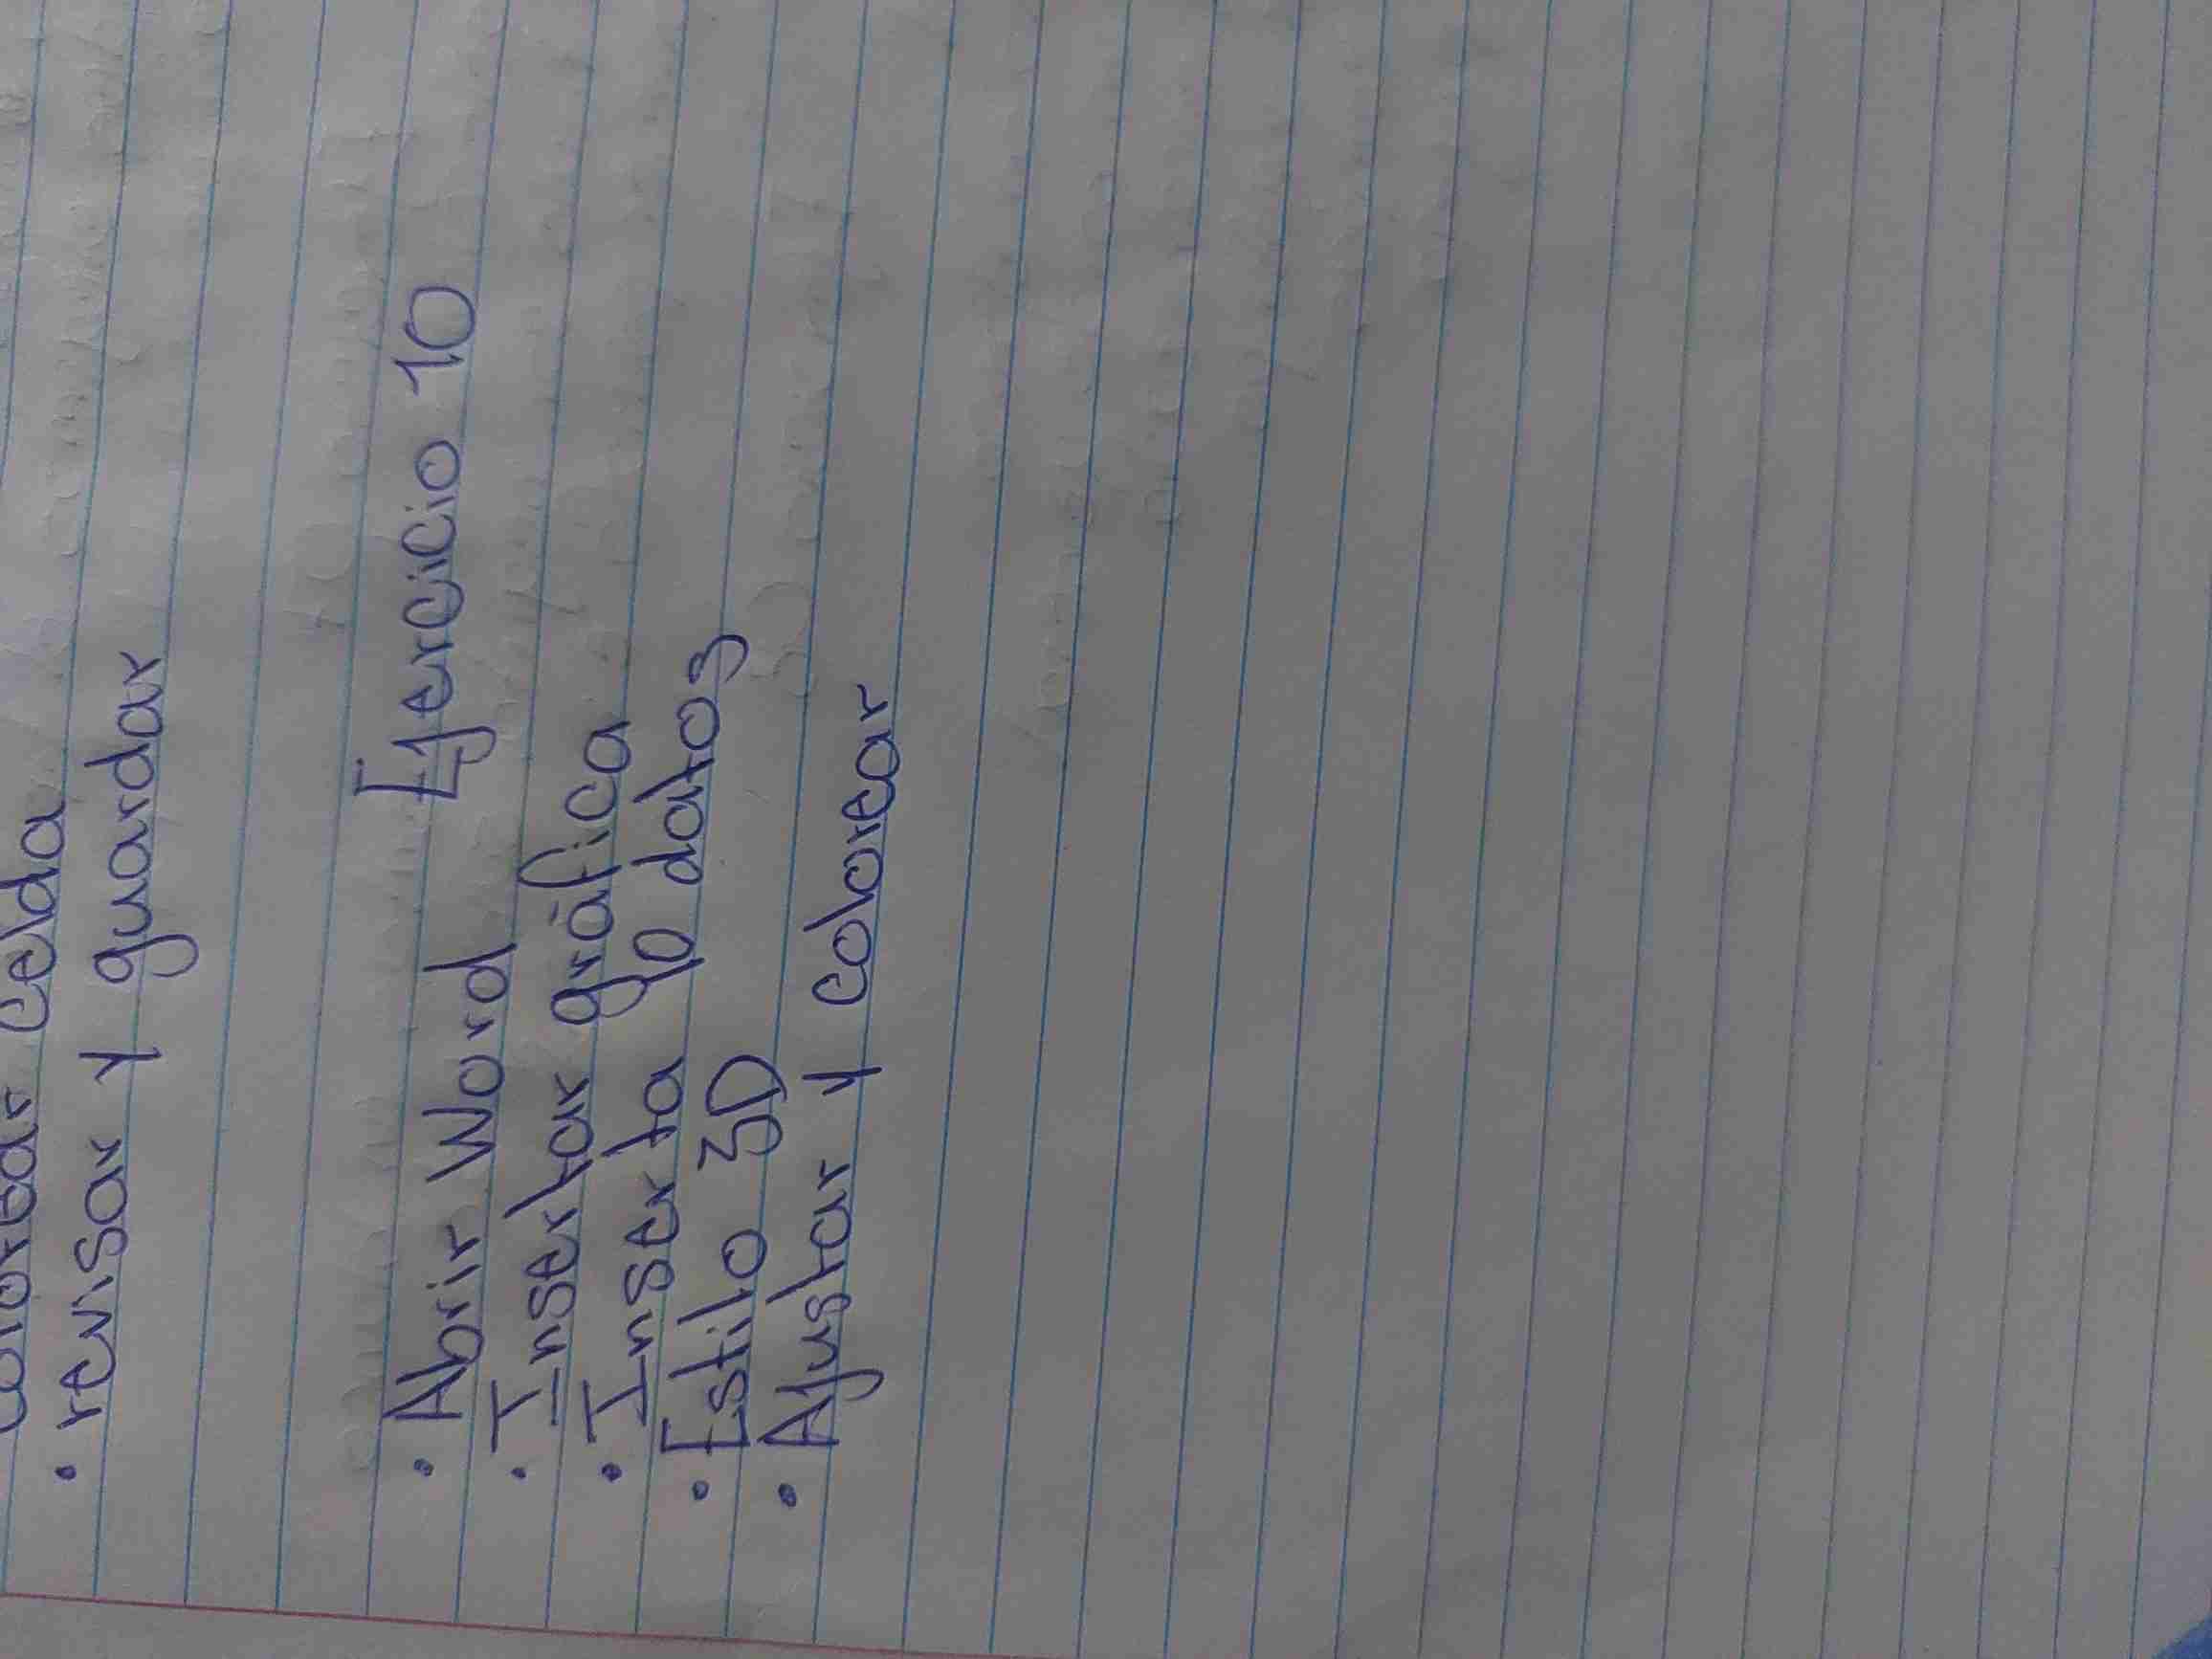 colorear celda
• revisar y guardar
Ejercicio 10
• Abrir Word
• Insertar gráfica
• Inserta 10 datos
• Estilo 3D
• Ajustar y colorear